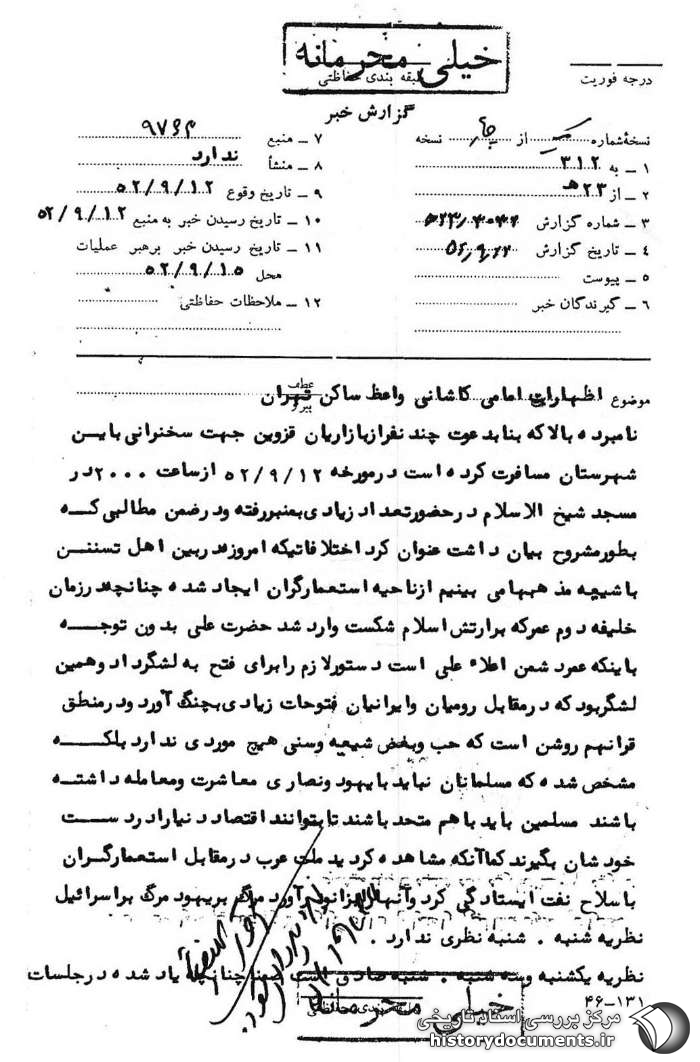 خیلی محرمانه
طبقه بندی حفاظتی
درجه فوریت
گزارش خبر
نسخهٔ شماره از نسخه
۱ ـ به ۳۱۲
۲ ـ از ۲۳ هـ
۳ ـ شماره گزارش
۴ ـ تاریخ گزارش
۵ ـ پیوست
۶ ـ گیرندگان خبر
۷ ـ منبع ۹۷۶۳
۸ ـ منشأ ندارد
۹ ـ تاریخ وقوع ۵۲/۹/۱۲
۱۰ ـ تاریخ رسیدن خبر به منبع ۵۲/۹/۱۲
۱۱ ـ تاریخ رسیدن خبر برهبر عملیات
محل ۵۲/۹/۱۵
۱۲ ـ ملاحظات حفاظتی
موضوع اظهارات امامی کاشانی واعظ ساکن تهران
عطف
پیرو
نامبرده بالا که بنابدعوت چند نفرازبازاریان قزوین جهت سخنرانی باین
شهرستان مسافرت کرده است درمورخه ۵۲/۹/۱۲ ازساعت ۲۰۰۰ در
مسجد شیخ الاسلام درحضورتعداد زیادی بمنبررفته ودرضمن مطالبی که
بطورمشروح بیان داشت عنوان کرد اختلافاتیکه امروزدربین اهل تسنن
باشیعه مذهبها می بینیم ازناحیه استعمارگران ایجاد شده چنانچه درزمان
خلیفه دوم عمرکه برارتش اسلام شکست وارد شد حضرت علی بدون توجه
باینکه عمرد شمن اعلاء علی است دستورلازم رابرای فتح به لشگرداد وهمین
لشگربود که درمقابل رومیان وایرانیان فتوحات زیادی بچنگ آورد ودرمنطق
قرانهم روشن است که حب وبغض شیعه وسنی هیچ موردی ندارد بلکه
مشخص شده که مسلمانان نباید بایهود ونصاری معاشرت ومعامله داشته
باشند مسلمین باید باهم متحد باشند تابتوانند اقتصاد دنیارادردست
خودشان بگیرند کماآنکه مشاهده کردید ملت عرب درمقابل استعمارگران
باسلاح نفت ایستادگی کرد وآنهارابزانو درآورد مرگ بریهود مرگ براسرائیل
نظریه شنبه . شنبه نظری ندارد .
نظریه یکشنبه وسه شنبه . شنبه صادق است ضمنا چنانچه یاد شده درجلسات
خیلی محرمانه
طبقه بندی حفاظتی
۴۶-۱۳۱
مرکز بررسی اسناد تاریخی
historydocuments.ir